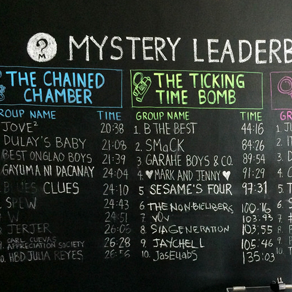 ? M MYSTERY LEADERB
THE CHAINED CHAMBER
GROUP NAME TIME
JOVE² 20:38
DULAY'S BABY 21:08
BEST ONGLAO BOYS 21:39
GAYUMA NI DACANAY 24:04
BLUES CLUES 24:10
SPEW 24:43
W 24:51
JERJER 26:05
CARL CUEVAS APPRECIATION SOCIETY 26:28
10. HBD JULIA REYES 26:56
THE TICKING TIME BOMB
GROUP NAME TIME
1. B THE BEST 44:16
2. SMaCK 84:26
3. GARAHE BOYS & CO. 89:54
4. ♥MARK AND JENNY♥ 91:29
5. SESAME'S FOUR 97:31
6 THE NON-BELIEBERS 100:16
7 VOV 103:93
8 SIAGENERATION 103:55
9. JAYCHELL 105:46
10. JaSEUabS 135:03